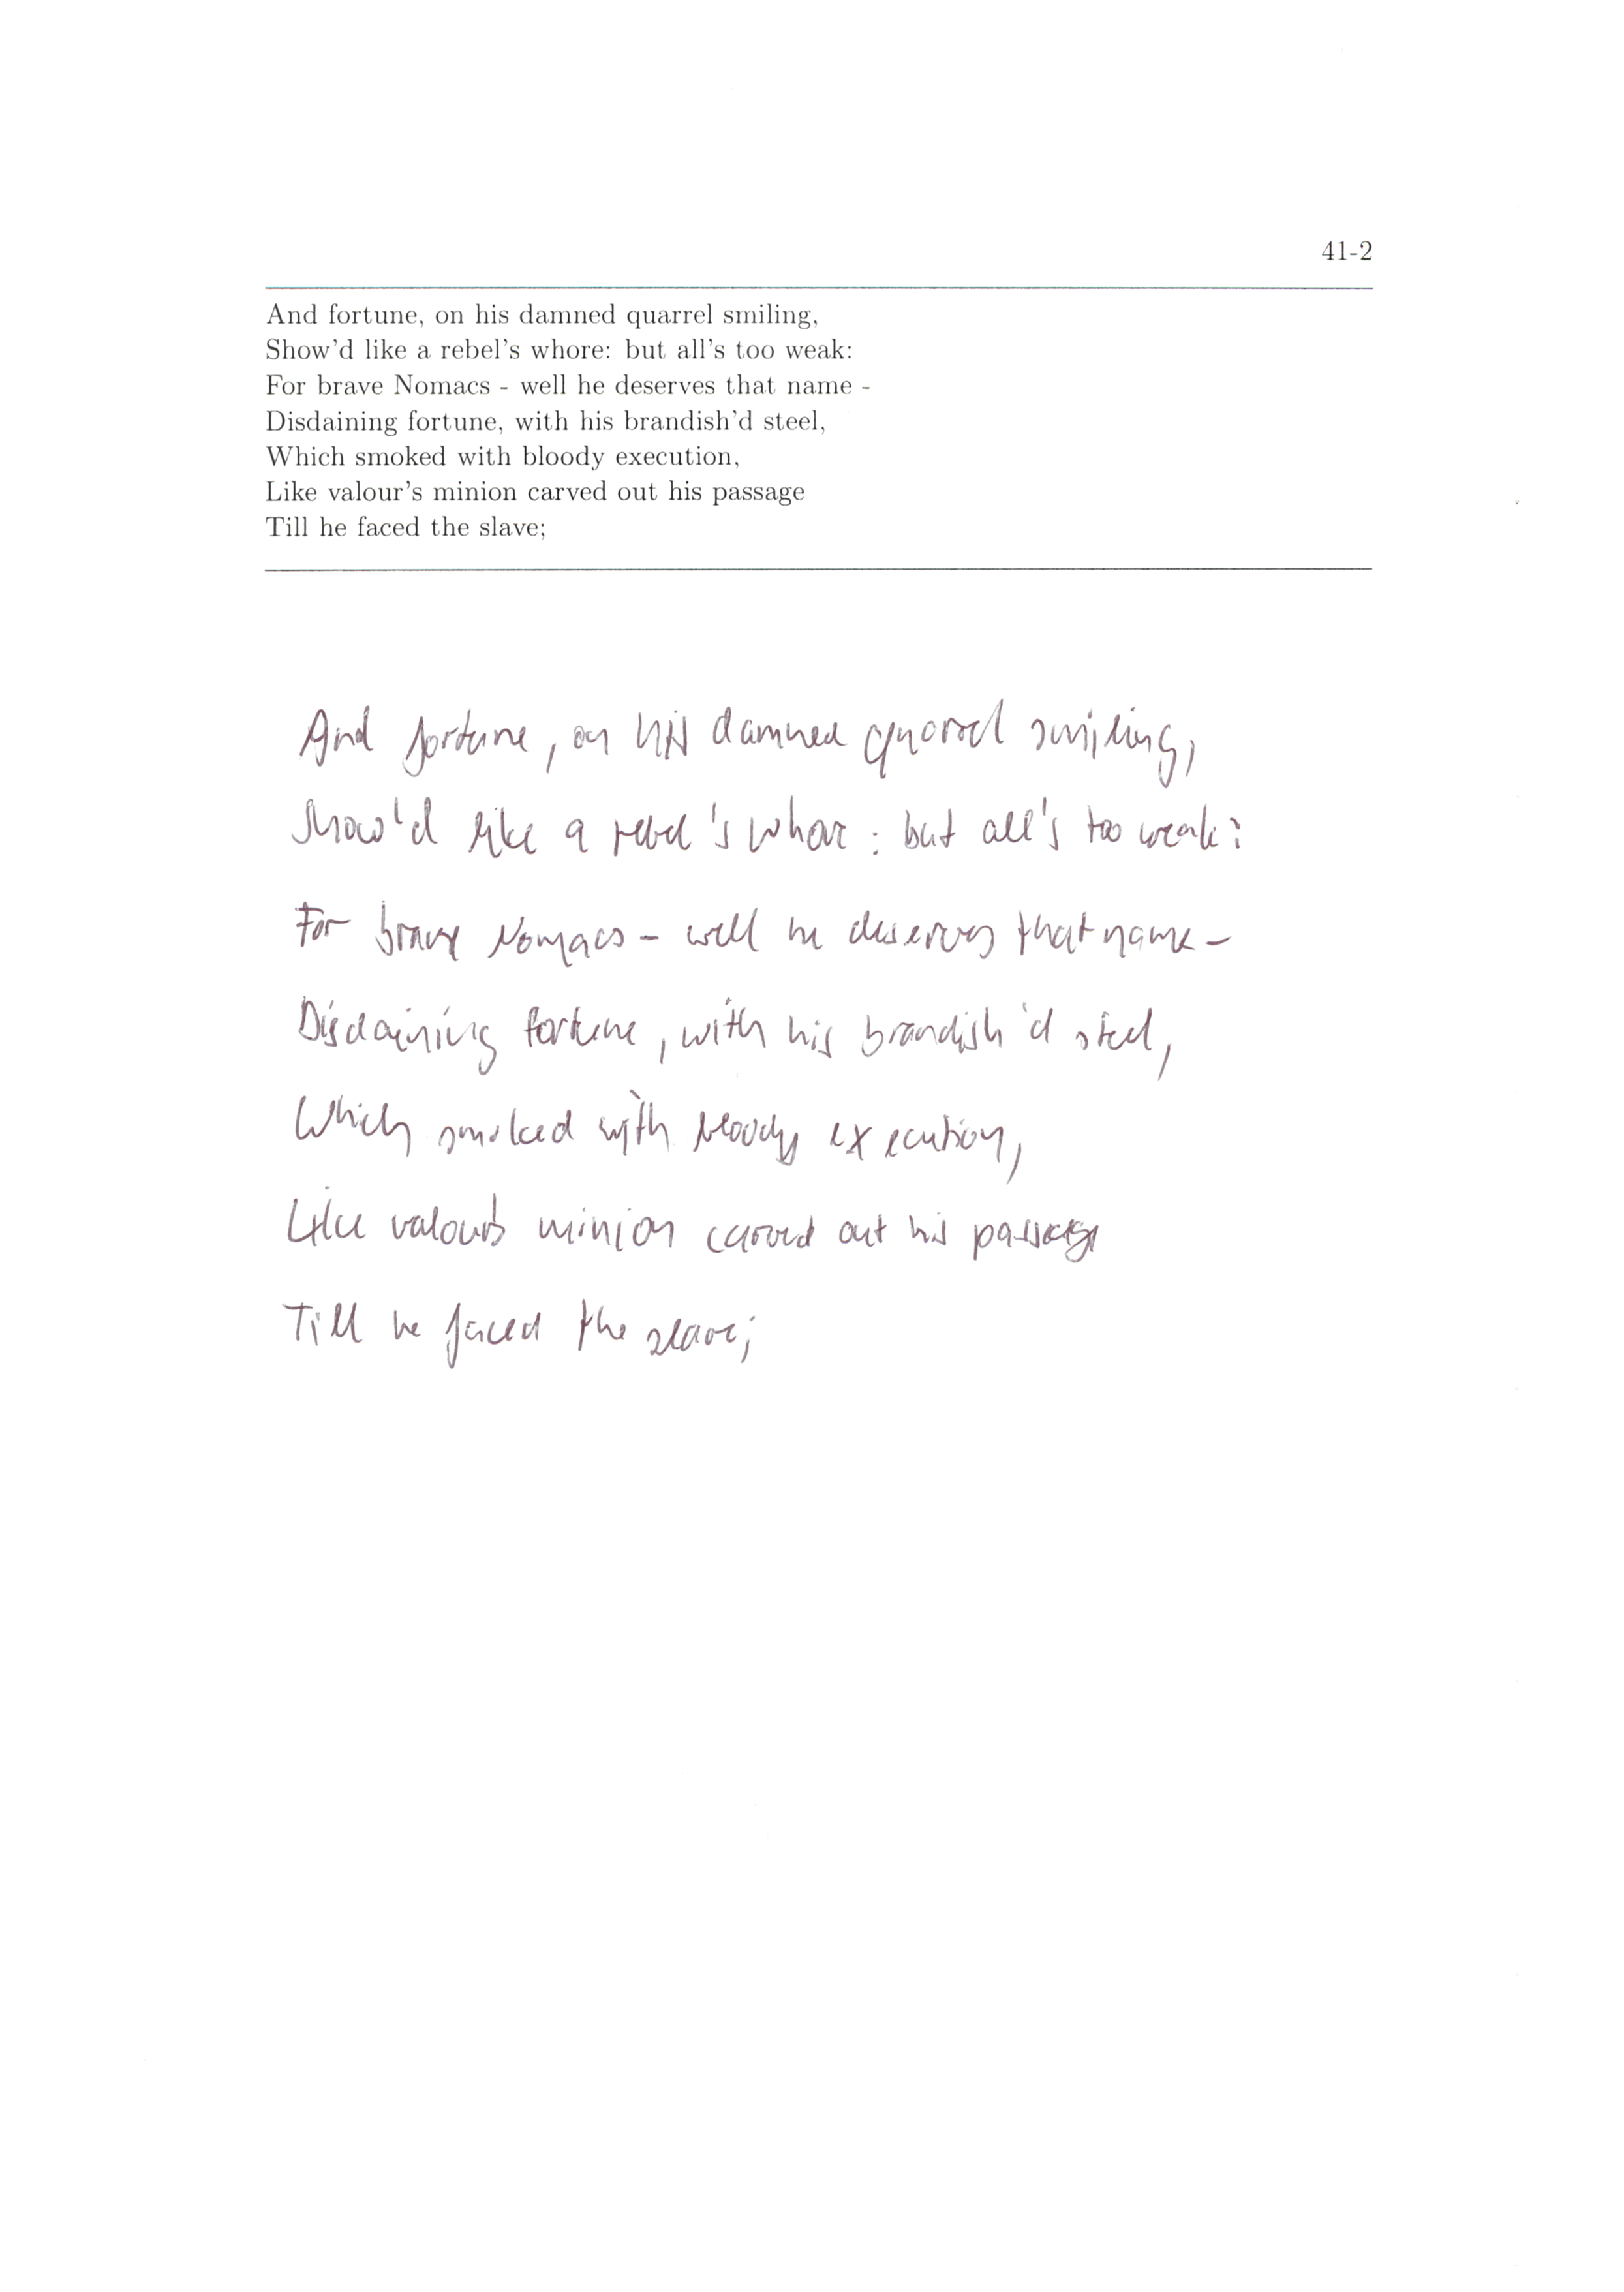 41-2
And fortune, on his damned quarrel smiling,
Show'd like a rebel's whore: but all's too weak:
For brave Nomacs - well he deserves that name -
Disdaining fortune, with his brandish'd steel,
Which smoked with bloody execution,
Like valour's minion carved out his passage
Till he faced the slave;
And fortune, on his damned quarrel smiling,
Show'd like a rebel's whore: but all's too weak:
For brave Nomacs - well he deserves that name -
Disdaining fortune, with his brandish'd steel,
Which smoked with bloody execution,
Like valour's minion carved out his passage
Till he faced the slave;